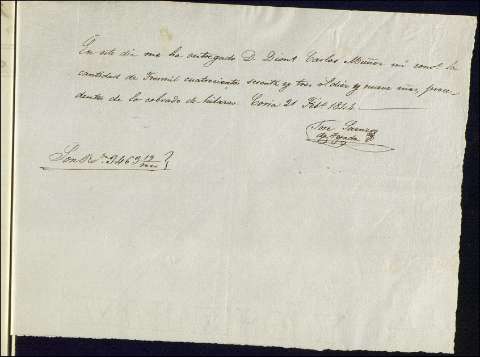 En este dia me ha entregado D. Dioni.º Carlos Muñoz mi com.do la
cantidad de Tresmil cuatrocientos sesenta y tres r.s diez y nueve mrs, proce-
dentes de lo cobrado de tabaco. Coria 21 Feb.º 1844.
Jose Saenz
de Tejada
Son R.s Vn. 3463 19 mrs